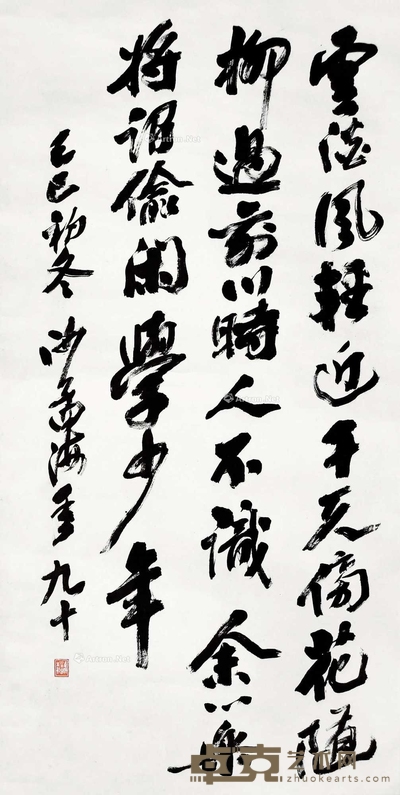 雲澹風輕近午天傍花隨
柳過前川時人不識余心樂
將謂偷閑學少年
己巳初冬 沙孟海年九十
卓克艺术网
zhuokearts.com